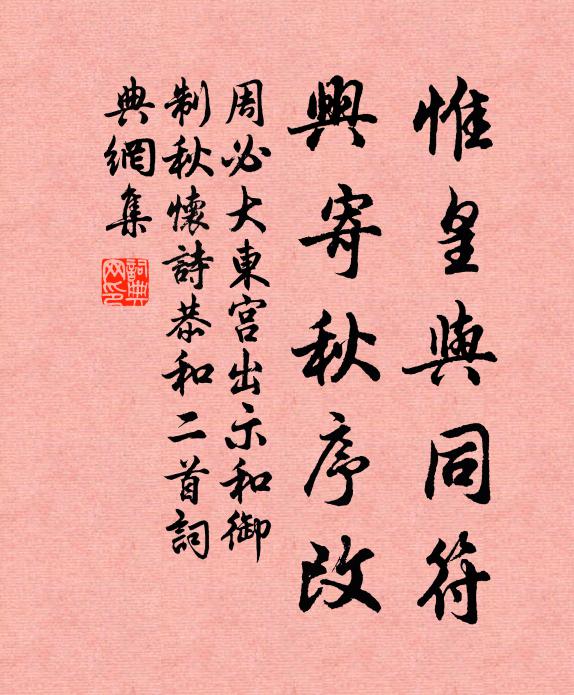 惟皇與同符
興寄秋序改
周必大東宮出示和御
制秋懷詩恭和二首詞
典網集
詞典
网印